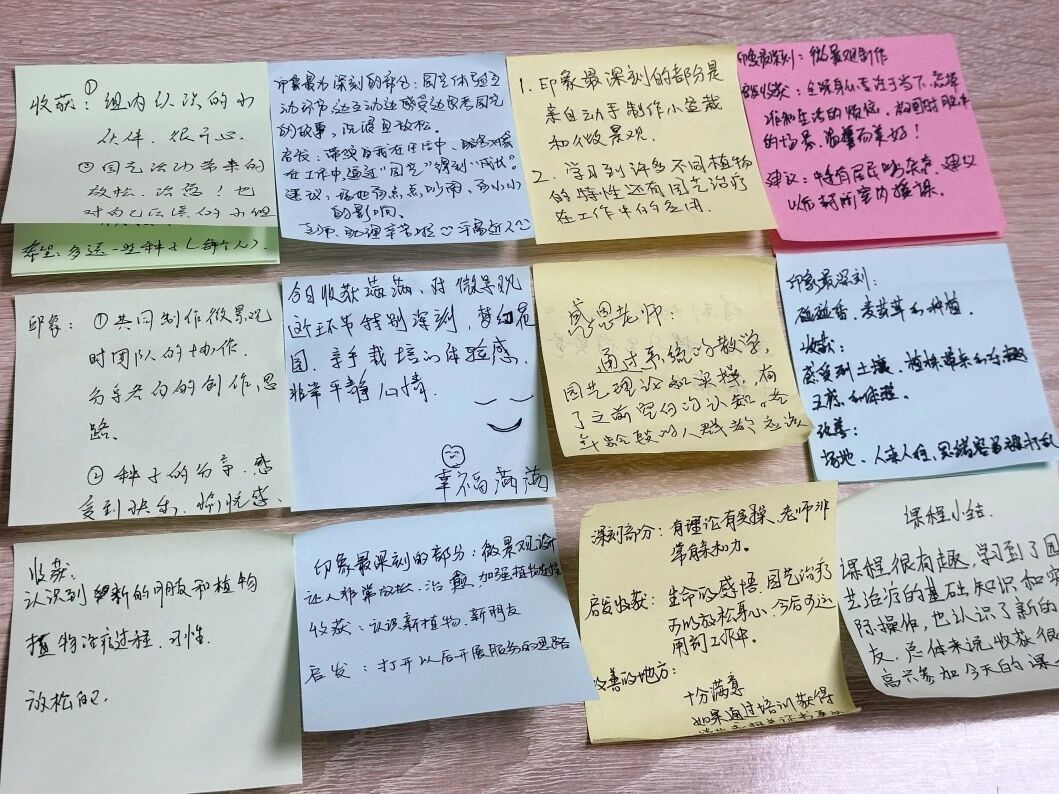 ①
收获：组内认识的小
伙伴，很开心。
②园艺活动带来的
放松、治愈！也
对自己
希望：多送一些种子（每个人）.
印象最为深刻的部分：园艺体验互
动环节，边互动边感受边思考园艺
的故事，沉浸且放松。
启发：
在工作中，通过“园艺”得到“成长”
建议：场地有点点吵闹，有小小
的影响。
老师、助理辛苦啦 平易近人
1. 印象最深刻的部分是
亲自动手制作小盆栽
和微景观.
2. 学习到许多不同植物
的特性还有园艺治疗
在工作中的
印象最深刻：微景观制作
收获：全程身心专注于当下，忘掉
和生活的烦恼，
的场景，温馨而美好！
建议：中途有居民吵杂声，建议
以后封闭室内授课。
印象：①共同制作微景观
时团队的协作.
各予各自的创作，思
路.
②种子的分享，感
受到快乐、愉悦感.
今日收获满满，对微景观
这环节特别深刻，梦幻花
园，亲手栽培的体验感，
非常平静心情.
幸福满满
感恩老师:
通过系统的教学，
园艺理论和实操，有
了之前 的认知。各
年龄段的人群都应该
印象最深刻：
碰碰香，的种植
收获：
感受到土壤，植株带来的
和体验。
改善：
场地，人来人往，思绪容易被打乱
收获：
认识到新的朋友和植物
植物治疗过程、习性
放松的心
印象最深刻的部分：微景观设计
让人非常放松、治愈，加强植物
收获：认识新植物、新朋友
启发：打开以后开展服务的思路
深刻部分：有理论有实操、老师非
常亲和力。
启发收获：生命的感悟，园艺治疗
可以放松身心，今后可运
用到工作中。
改善的地方：
十分满意
如果通过培训获得
课程小结.
课程很有趣，学习到了园
艺治疗的基础知识和实
际操作，也认识了新的
友，总体来说收获很
高兴参加今天的课